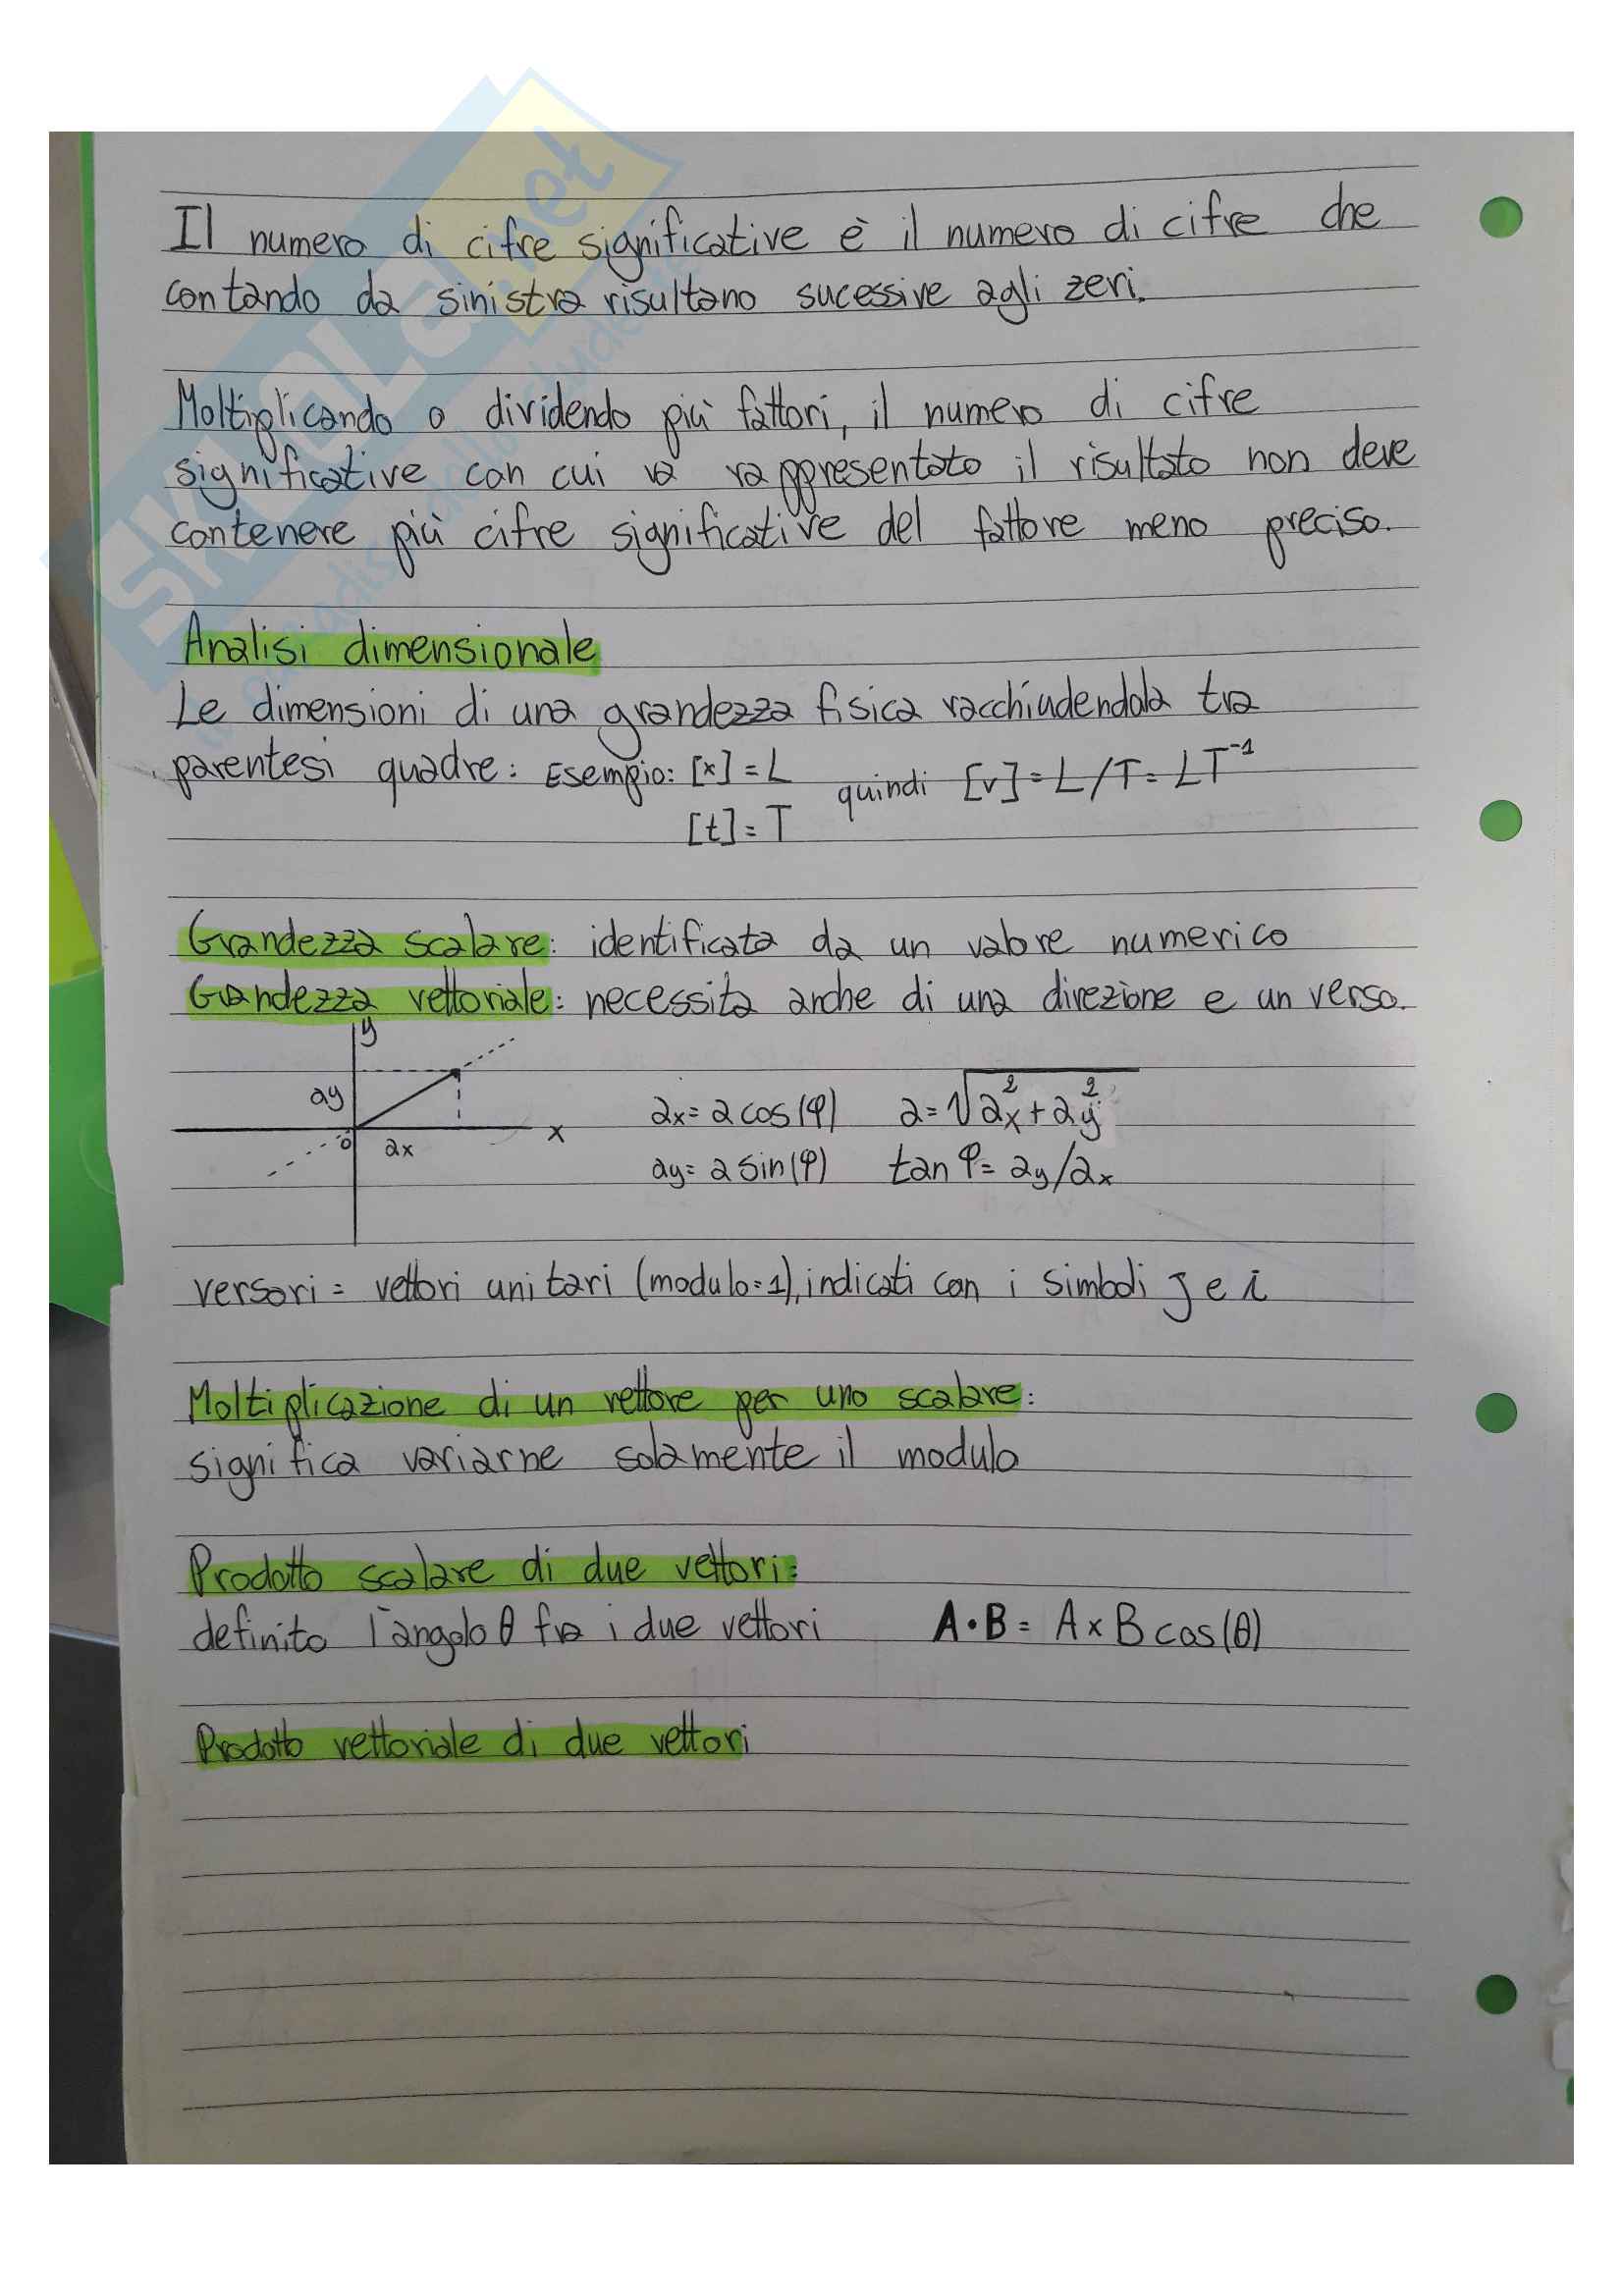 Il numero di cifre significative è il numero di cifre che
contando da sinistra risultano sucessive agli zeri.
Moltiplicando o dividendo più fattori, il numero di cifre
significative con cui va rappresentato il risultato non deve
contenere più cifre significative del fattore meno preciso.
Analisi dimensionale
Le dimensioni di una grandezza fisica racchiudendola tra
parentesi quadre: Esempio: [x] = L quindi [v] = L/T = LT⁻¹
[t] = T
Grandezza scalare: identificata da un valore numerico
Grandezza vettoriale: necessita anche di una direzione e un verso.
y
ay
o ax x
ax = a cos(φ) a = √ax² + ay²
ay = a sin(φ) tan φ = ay/ax
versori = vettori unitari (modulo=1), indicati con i simboli J e i
Moltiplicazione di un vettore per uno scalare:
significa variarne solamente il modulo
Prodotto scalare di due vettori:
definito l'angolo θ fra i due vettori A·B = A x B cos(θ)
Prodotto vettoriale di due vettori
SKUOLA.net